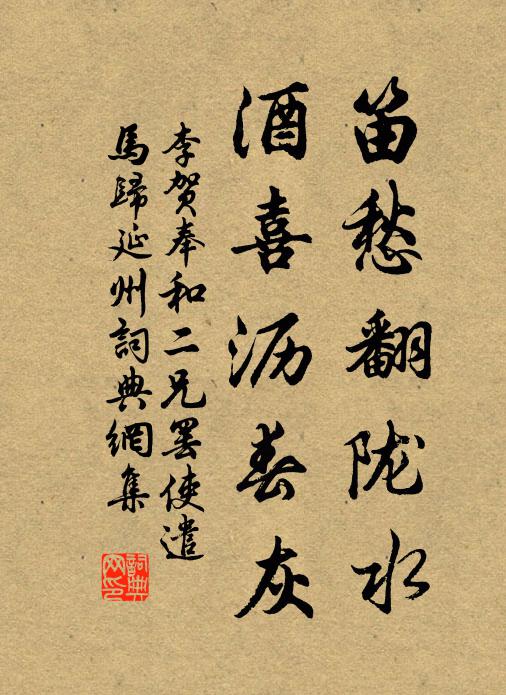 笛愁翻陇水
酒喜沥春灰
李贺奉和二兄罢使遣
馬歸延州詞典網集
詞典
网印